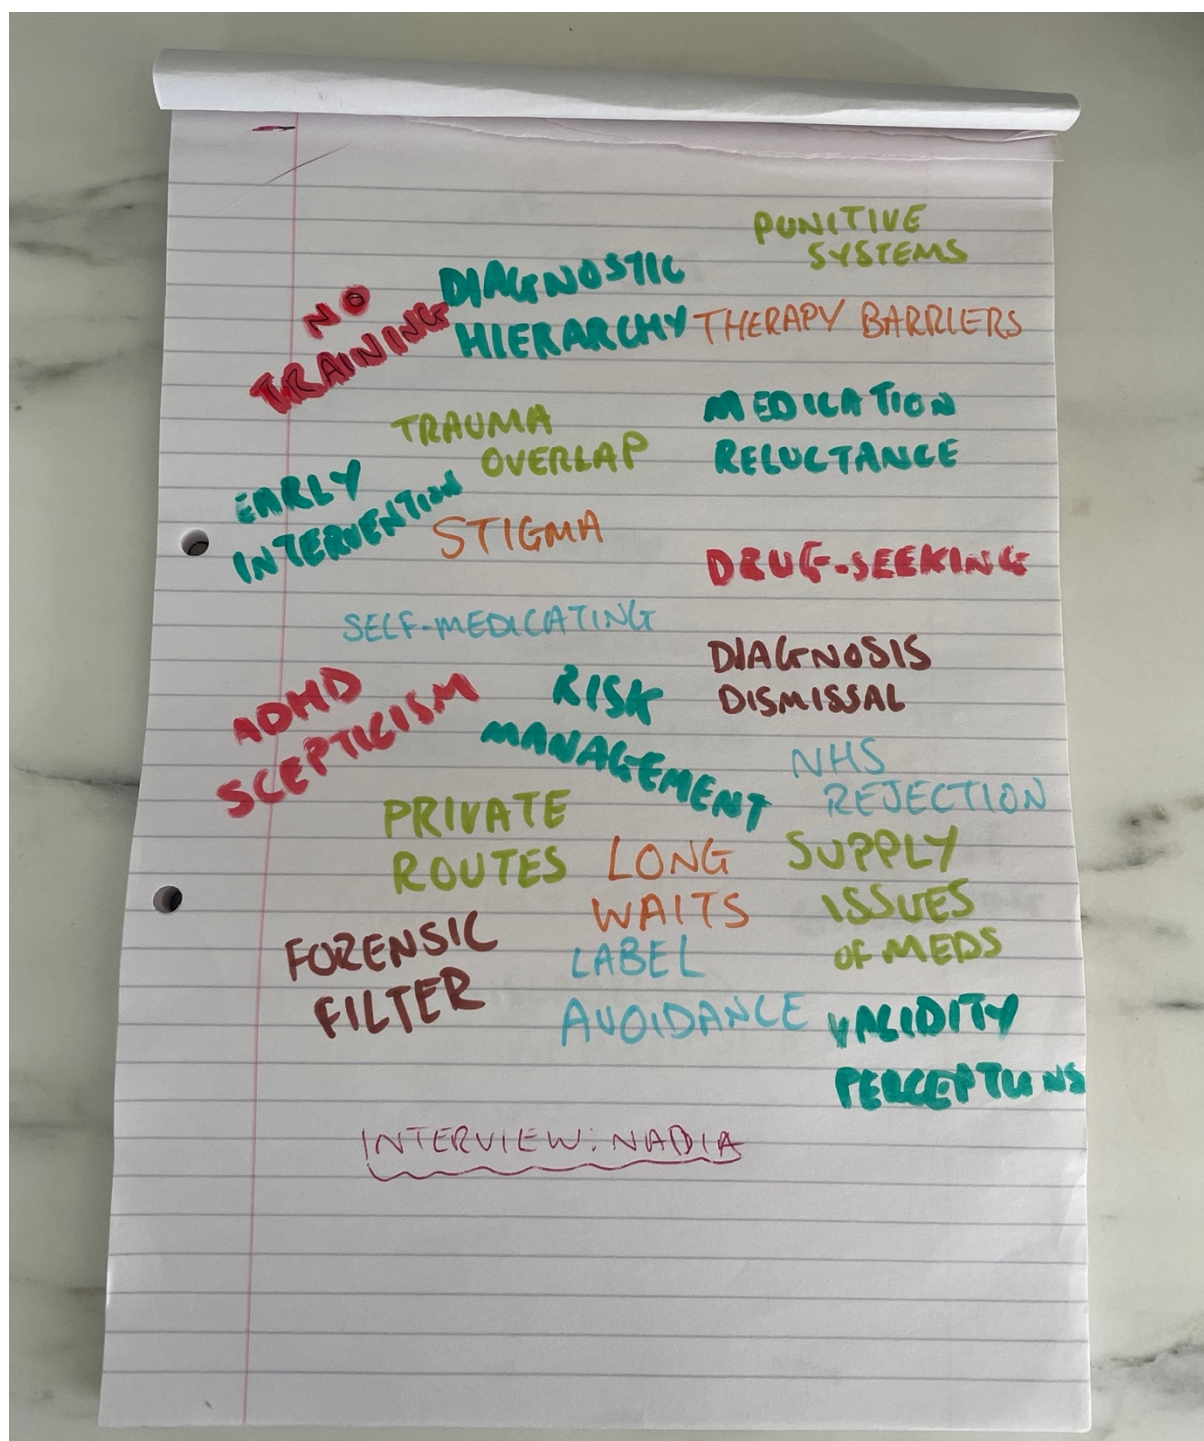 PUNITIVE
SYSTEMS
NO
TRAINING
DIAGNOSTIC
HIERARCHY
THERAPY BARRIERS
TRAUMA
OVERLAP
MEDICATION
RELUCTANCE
EARLY
INTERVENTION
STIGMA
DRUG-SEEKING
SELF-MEDICATING
DIAGNOSIS
DISMISSAL
ADHD
SCEPTICISM
RISK
MANAGEMENT
NHS
REJECTION
PRIVATE
ROUTES
LONG
WAITS
SUPPLY
ISSUES
OF MEDS
FORENSIC
FILTER
LABEL
AVOIDANCE
VALIDITY
PERCEPTIONS
INTERVIEW: NADIA